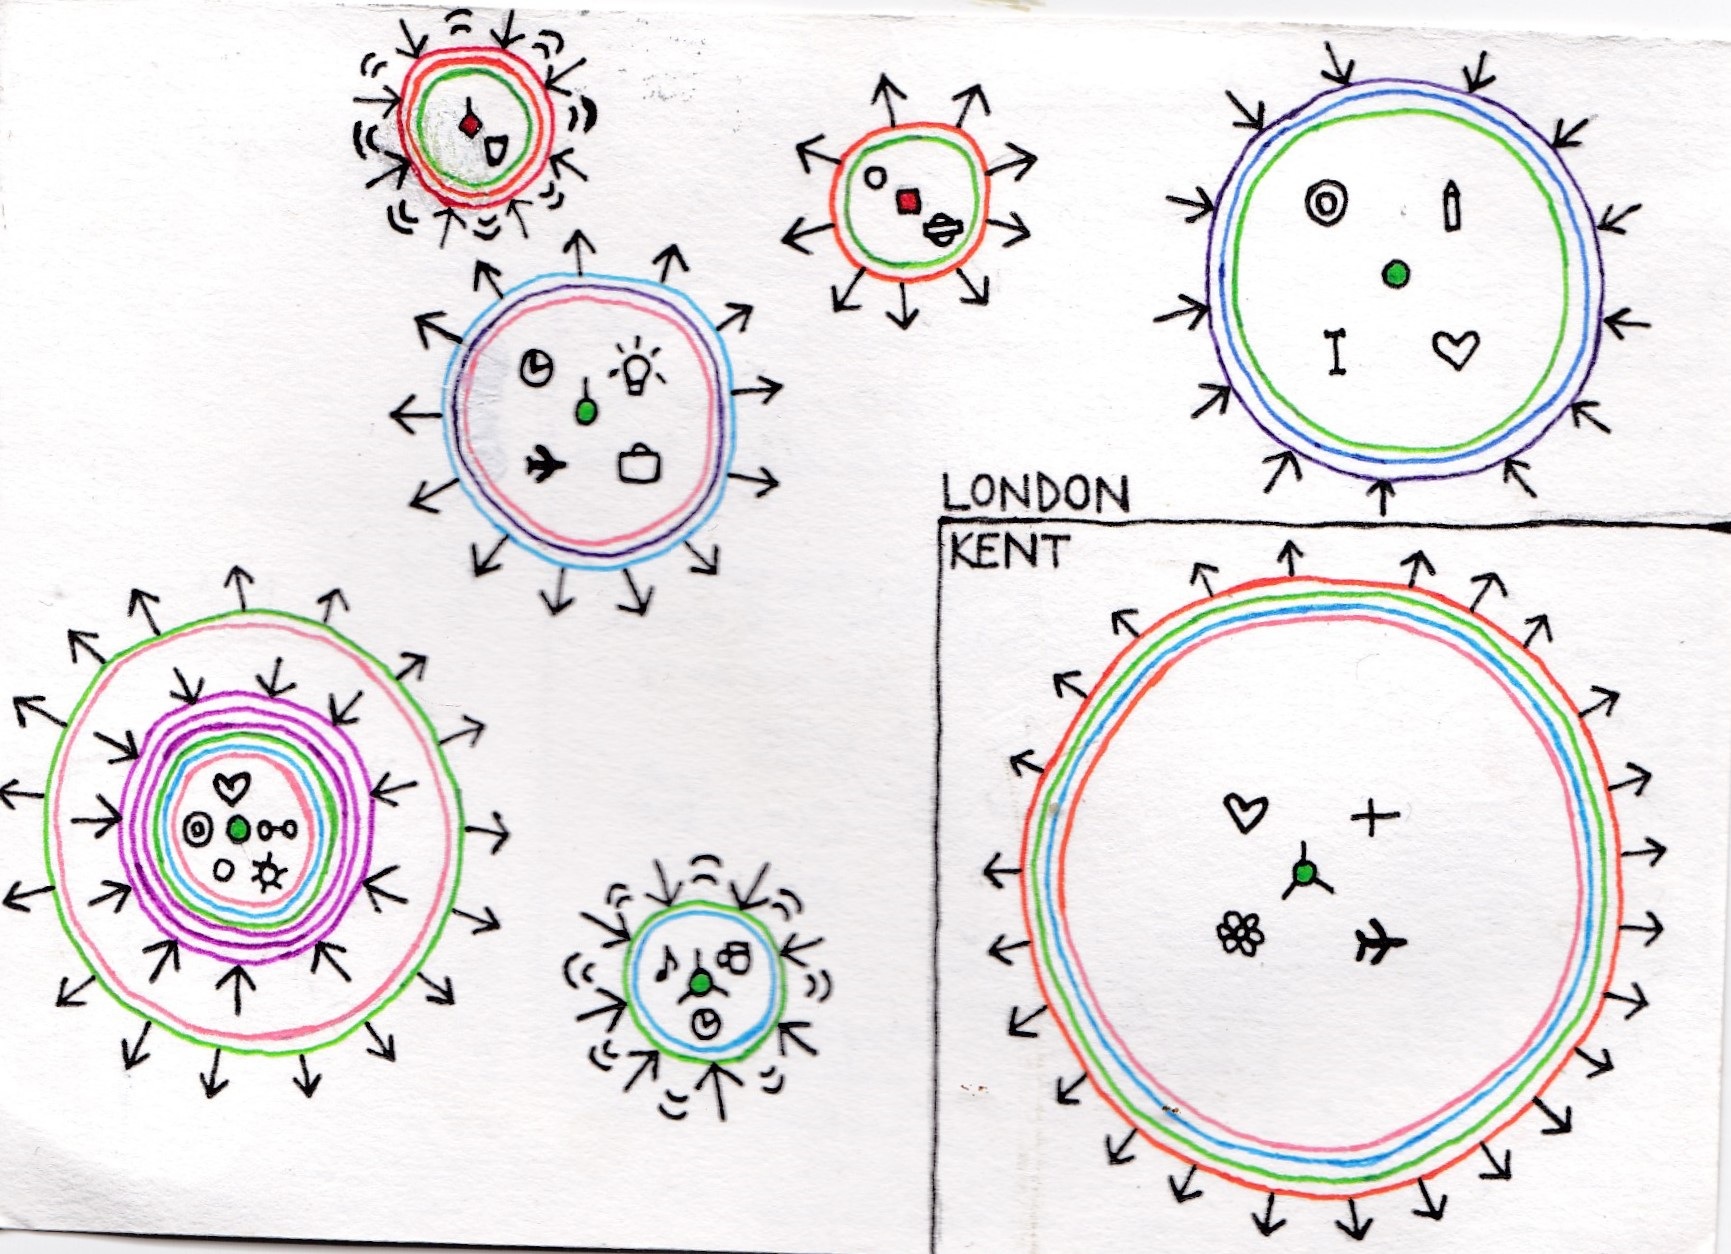 LONDON
KENT